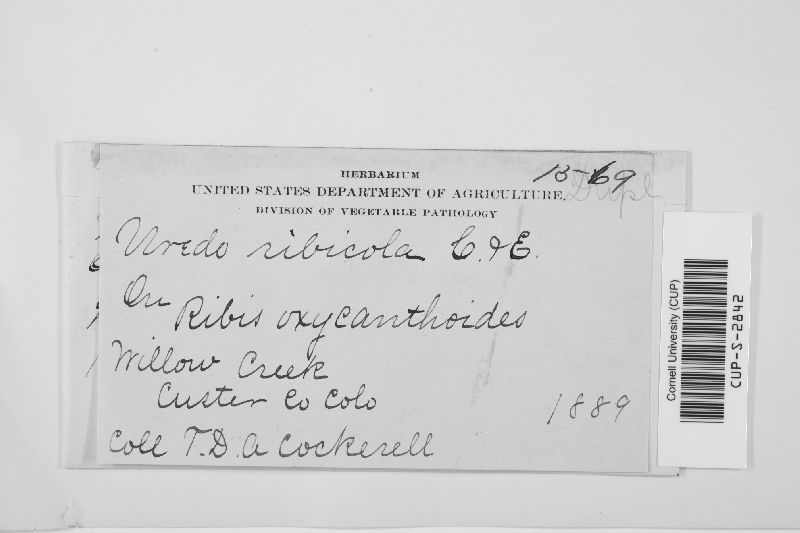 1569
HERBARIUM
Dupl
UNITED STATES DEPARTMENT OF AGRICULTURE.
DIVISION OF VEGETABLE PATHOLOGY
Uredo ribicola C. & E.
On Ribis oxycanthoides
Willow Creek
Custer Co Colo
1889
Coll T. D. A Cockerell
Cornell University (CUP)
CUP-S-2842